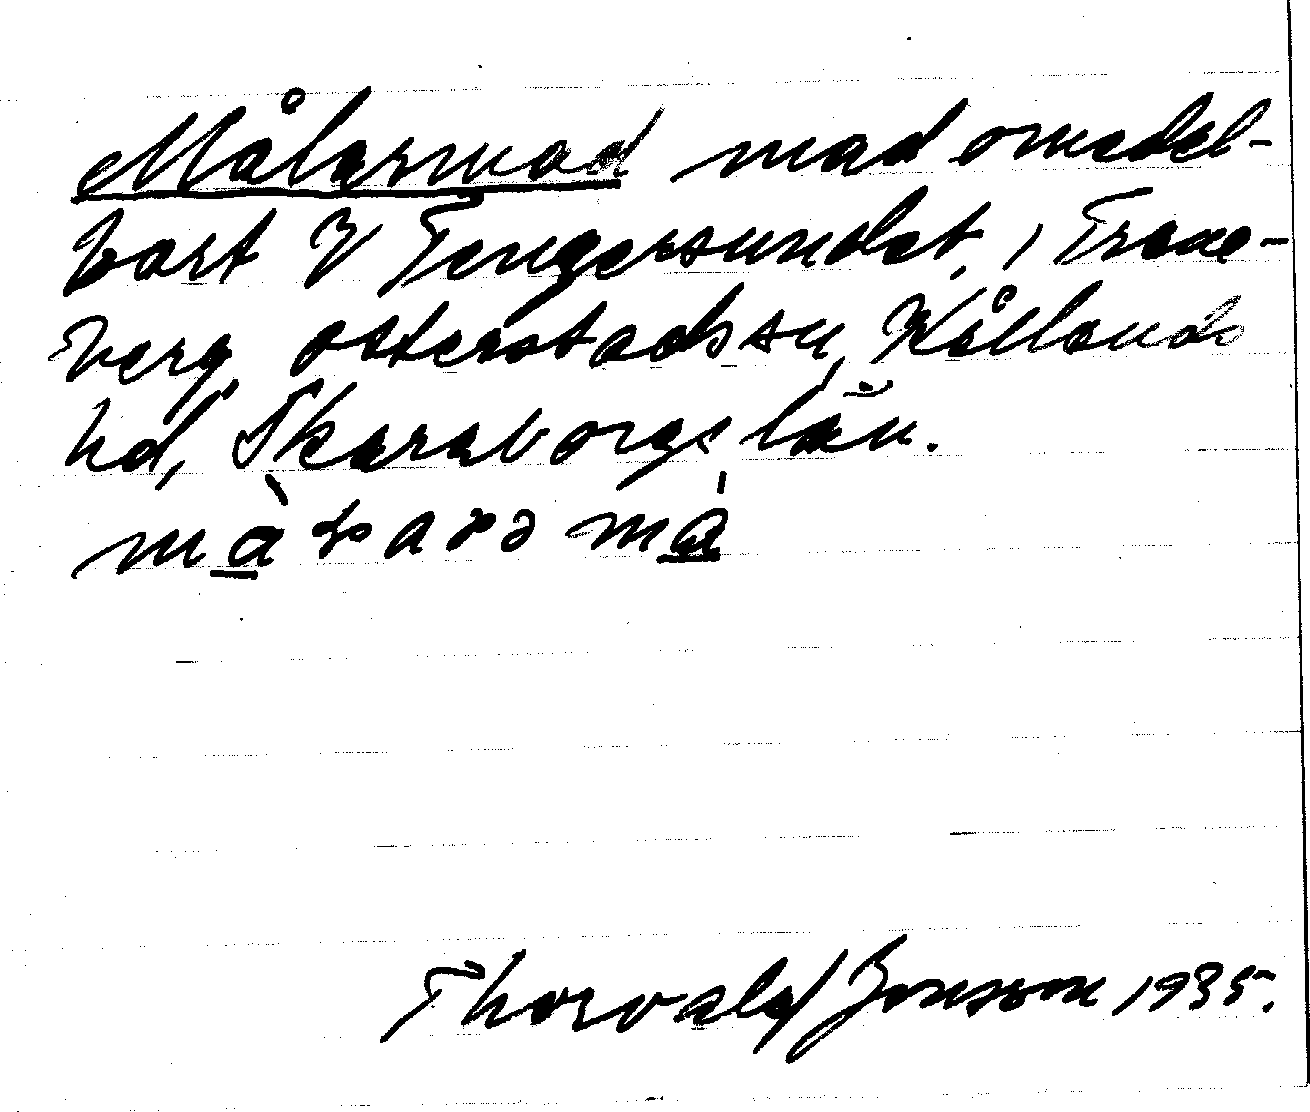 Målarmad mad omedel-
bart V Tengersundet, i Trane-
berg, Otterstads sn, Kållands
hd, Skaraborgs län.
Thorvald Jonsson 1935.